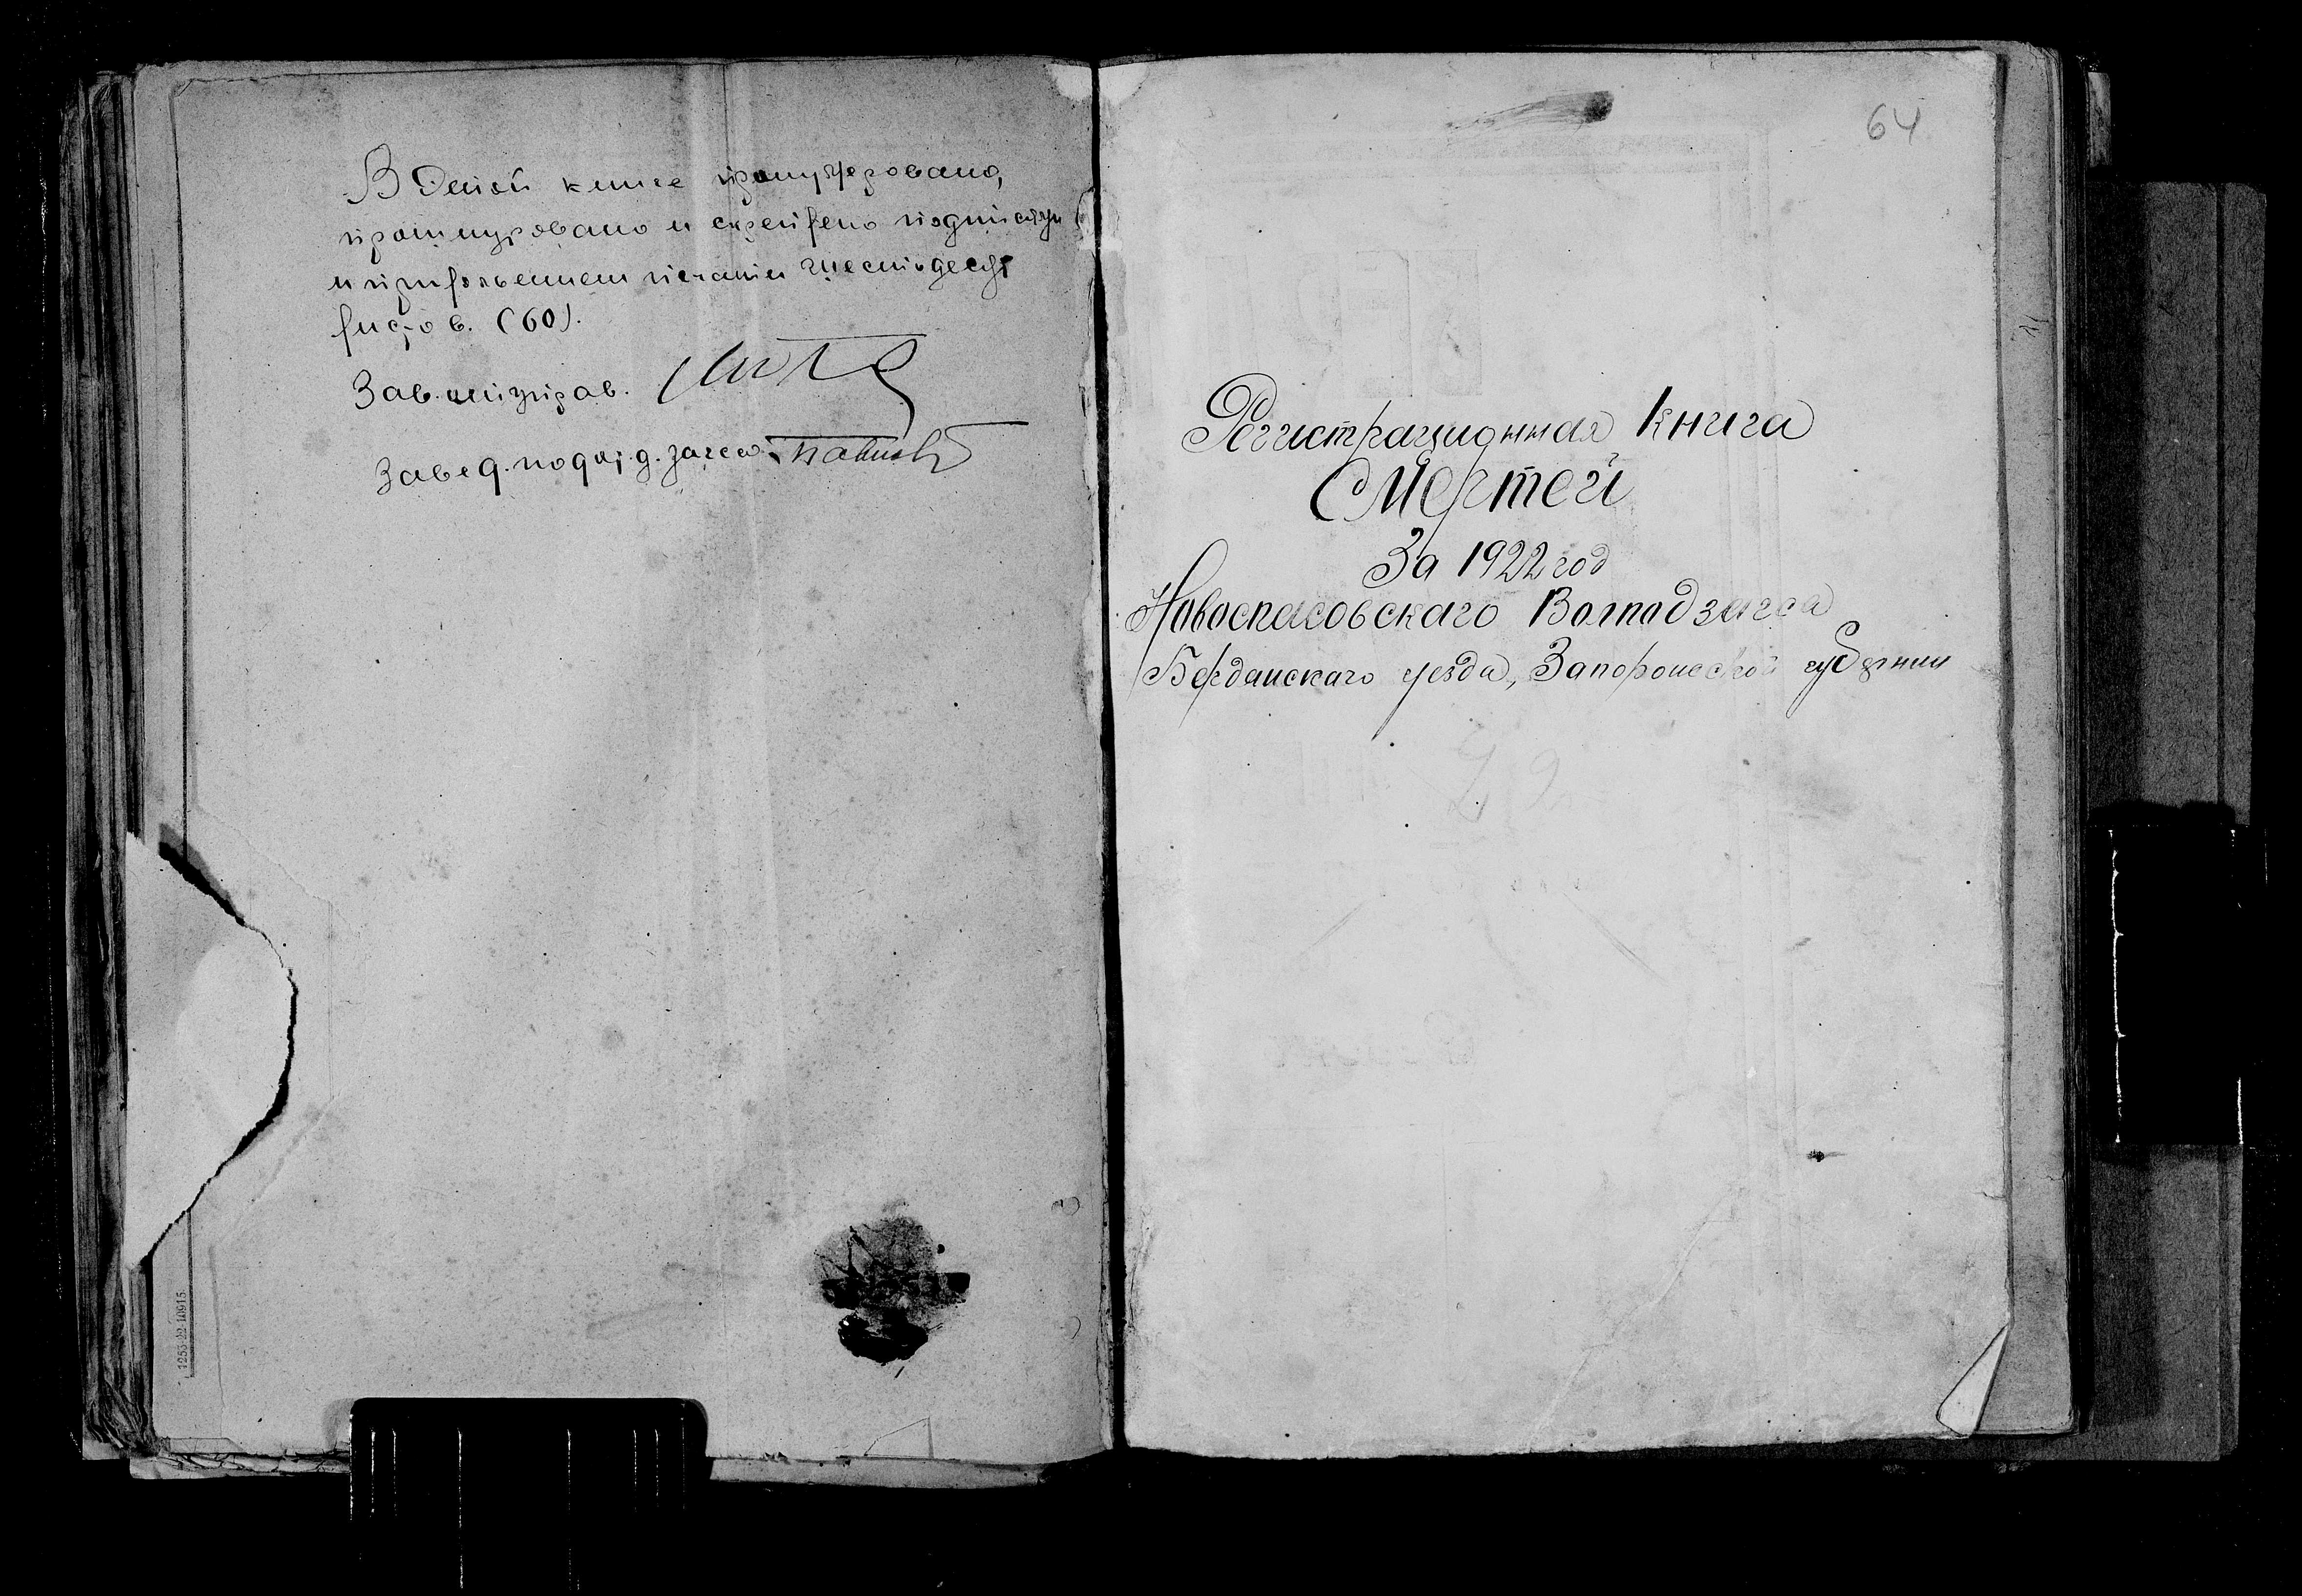 В сией книге пронумеровано,
прошнуровано и скреплено подписями
и приложением печати шестьдесят
листов. (60).
Зав.
Завед. под. загса
64
Регистрационная книга
Смертей
За 1922 год
Новоспасовскаго Волподзагса
Бердянскаго уезда, Запорожской губернии
1253-22-10915